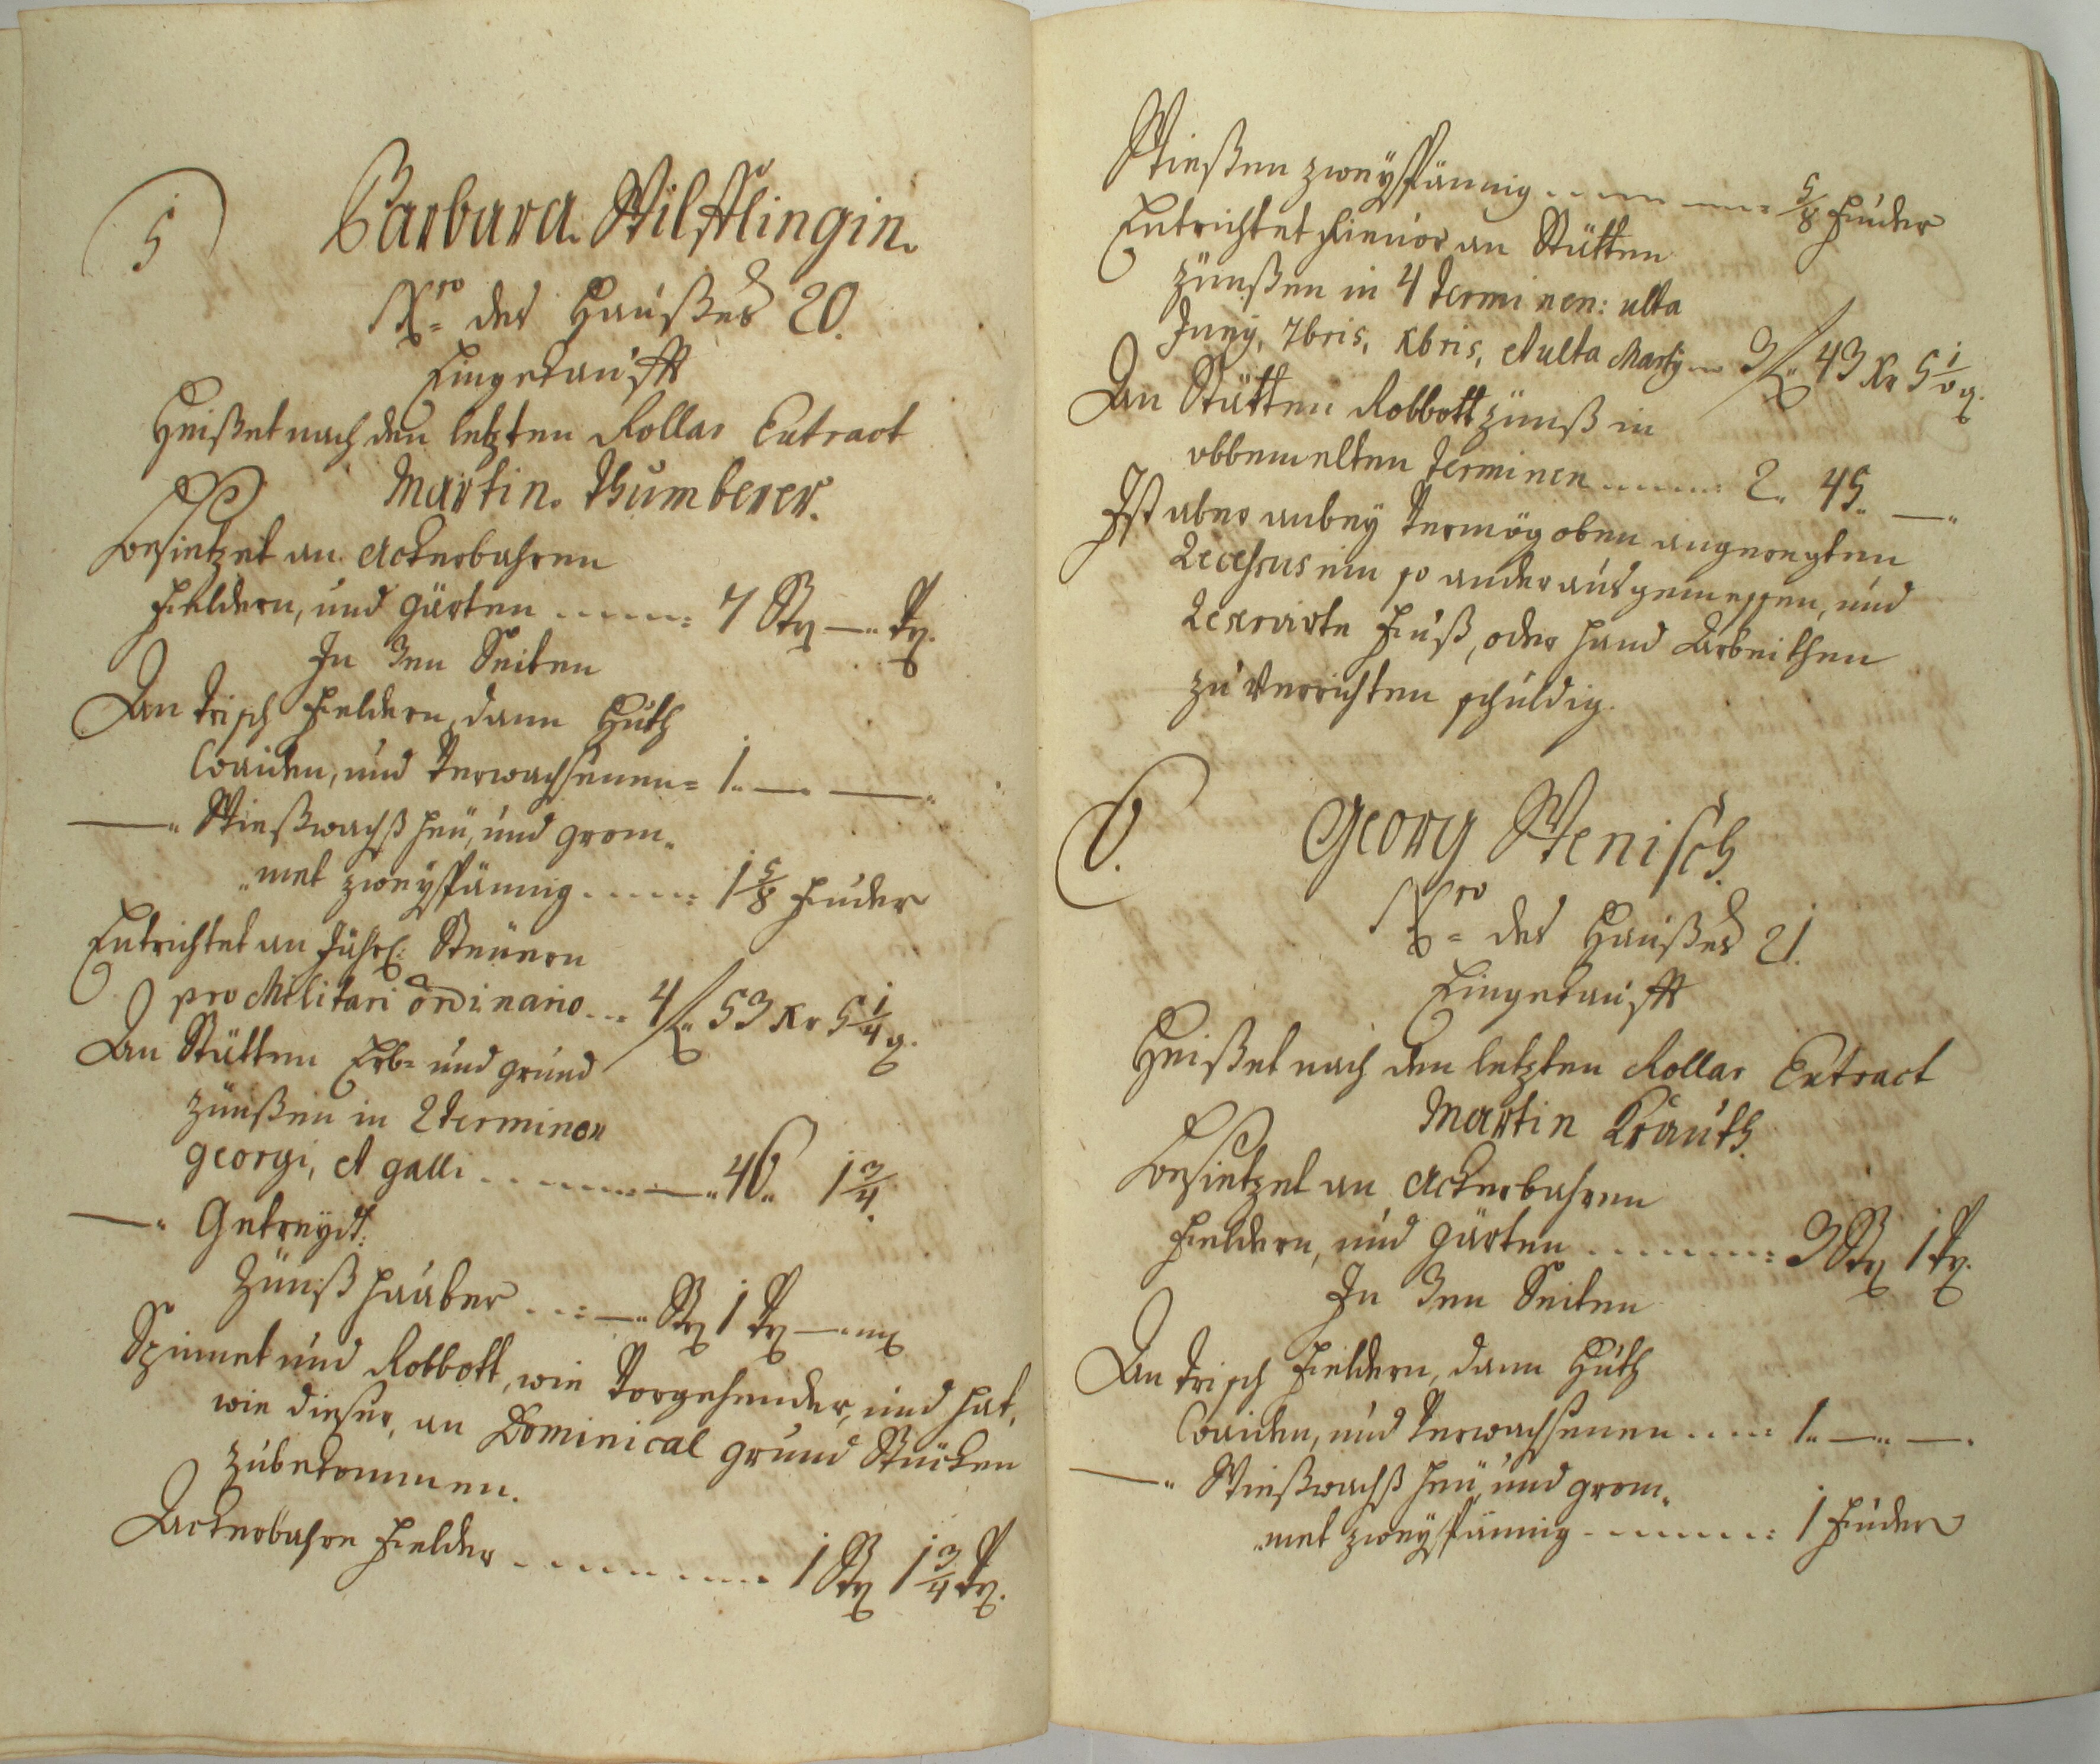 5
Barbara Wilfflingin.
Nro des Haußes 20.
Eingekaufft
Heißet nach den letzten Rollar Extract
Martin Thumberer.
Besietzet an Ackerbahren
Fieldern, und gärten ...... 7 Str —" Vrt.
In 3en Seiten
An Trisch Fieldern, dann Huth
Waiden, und Verwachsenen = 1" —" —"
—" Wießwachß Heü, und grom„
„met zweyspännig ..... 1 5/8 Fuder
Entrichtet an Jährl: Steüern
pro Militari ordinario ... 4 f" 53 Kr 5 1/4 d.
An Stätten Erb- und grund
zünßen in 2 terminen
georgi, et galli ........ —" 46" 1 3/4.
—" Getreydt:
Zünß haaber ... —" Str 1 Vrt —" mx
Spinnet und Robbott, wie Vorgehender, und hat,
wie dießer, an Dominical grund Stücken
zubekommen.
Ackerbahre Fielder .......... 1 Str 1 3/4 Vrt.
Wießen zweyspännig ........ 5/8 Fuder
Entrichtet hievor an Stätten
zünßen in 4 terminen: ulta
Juny, 7bris, Xbris, et ulta Martÿ .. 3 f" 43 Kr 5 1/8 d.
An Stätten Robbott zünß in
obbemelten terminen ...... 2" 45" —"
Ist aber anbey Vermög oben angeregten
Recessus ein so ander ausgemessen, und
Rexrirte Fuß, oder Hand Arbeithen
zu Verrichten schuldig.
6.
Georg Wenisch.
Nro des Haußes 21.
Eingekaufft
Heißet nach den letzten Rollar Extract
Martin Krauth.
Besietzet an Ackerbahren
Fieldern, und gärten ........ 3 Str 1 Vrt.
In 3en Seiten
An Trisch Fieldern, dann Huth
Waiden, und Verwachsenen ..... 1" —" —"
—" Wießwachß Heü, und grom„
„met zweyspännig ........ 1 Fuder